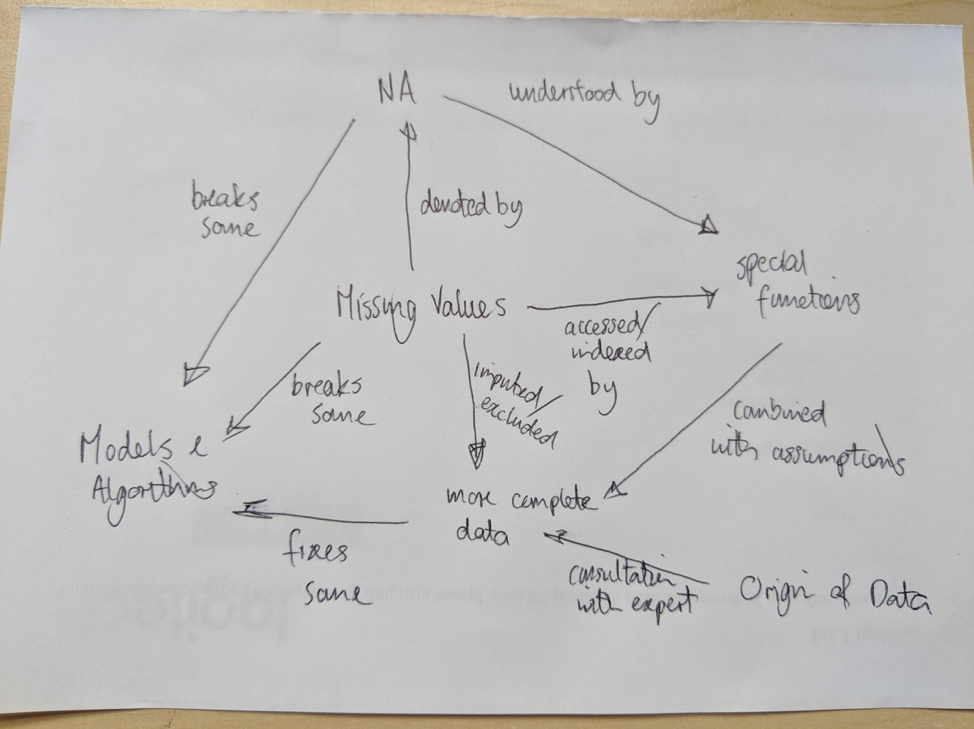 NA
understood by
breaks
some
denoted by
special
functions
Missing Values
accessed/
indexed
by
breaks
some
imputed/
excluded
combined
with assumptions
Models &
Algorithms
more complete
data
fixes
some
consultation
with expert
Origin of Data